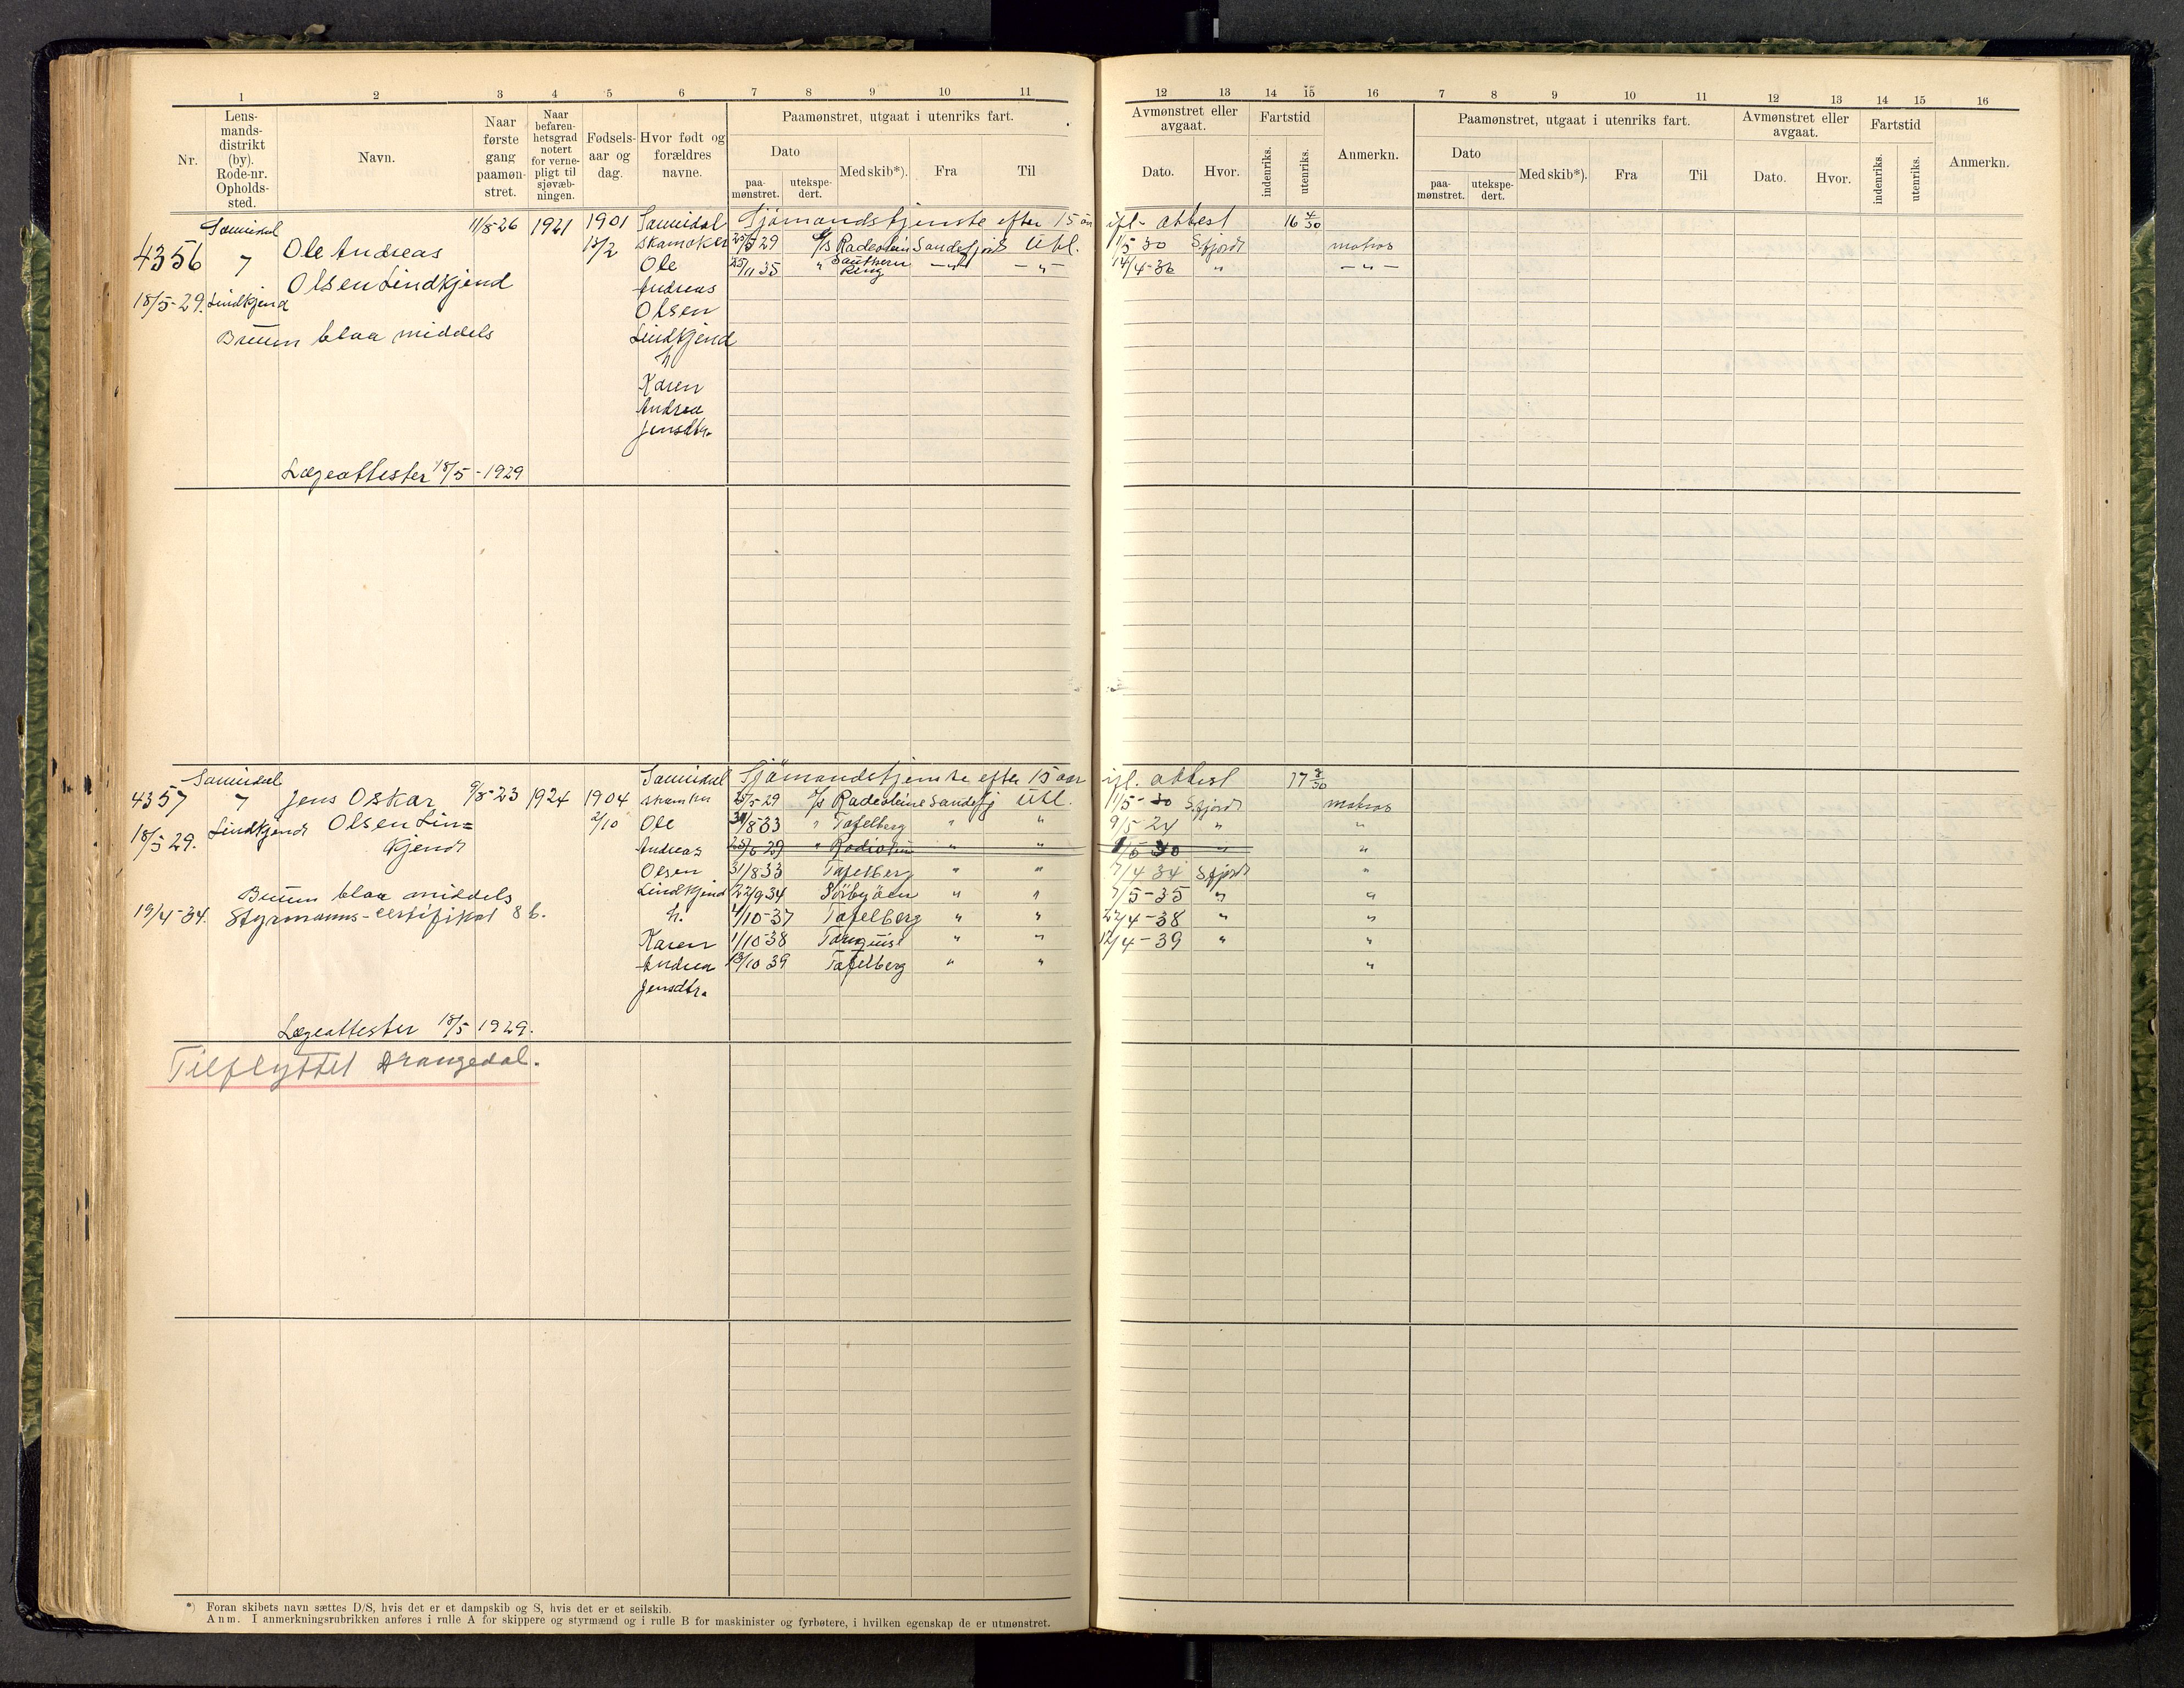 1 2 3 4 5 6 7 8 9 10 11
Nr.
Lens-
mands-
distrikt
(by).
Rode-nr.
Opholds-
sted.
Navn.
Naar
første
gang
paamøn-
stret.
Naar
befaren-
hetsgrad
notert
for verne-
pligt til
sjøvæb-
ningen.
Fødsels-
aar og
dag.
Hvor født og
forældres
navne.
Paamønstret, utgaat i utenriks fart.
Dato
paa-
mønstret.
utekspe-
dert.
Med skib*).
Fra
Til
12 13 14 15 16 7 8 9 10 11 12 13 14 15 16
Avmønstret eller
avgaat.
Dato.
Hvor.
Fartstid
indenriks.
utenriks.
Anmerkn.
Paamønstret, utgaat i utenriks fart.
Dato
paa-
mønstret.
utekspe-
dert.
Med skib*).
Fra
Til
Avmønstret eller
avgaat.
Dato.
Hvor.
Fartstid
indenriks.
utenriks.
Anmerkn.
Sannidal 11/8-26 1921 1901 Sannidal Sjømandstjenste efter 15 aar ifl. attest 16 4/30
4356 7 Ole Andreas 13/2 25/5 29 Sandefjord Utl. 11/5 30 S.fjord matros
Ole 25/11 35 " Southern King -"- -"- 14/4-36 " -"-
Olsen Lindkjend Andreas
18/5-29. Lindkjend Olsen
Bruun blaa middels Lindkjend
h
Karen
Andrea
Jensdtr.
Lægeattester 18/5-1929
Sannidal Sannidal Sjømandstjenste efter 15 aar ifl. attest 17 3/30
4357 7 Jens Oskar 9/8-23 1924 1904 25/5-29 Sandefj Utl. 11/5-30 S.fjord matros
18/5 29. Lindkjend Olsen Lin= 2/10 Ole 31/8-33 " Tafelberg " " 9/5 24 " "
kjend Andreas 25/5 29 " " " " "
Olsen 31/8 33 Tafelberg " " 7/4 34 S.fjord "
Bruun blaa middels Lindkjend 22/9 34 " " 7/5-35 " "
19/4-34. Styrmanns-certifikat 8 b. h. 4/10-37 Tafelberg " " 22/4-38 " "
Karen 1/10-38 " " 12/4-39 " "
Andrea 13/10 39 Tafelberg " " "
Jensdtr.
Lægeattester 18/5 1929.
Tilflyttet Drangedal.
*) Foran skibets navn sættes D/S, hvis det er et dampskib og S, hvis det er et seilskib.
Anm. I anmerkningsrubrikken anføres i rulle A for skippere og styrmænd og i rulle B for maskinister og fyrbøtere, i hvilken egenskap de er utmønstret.